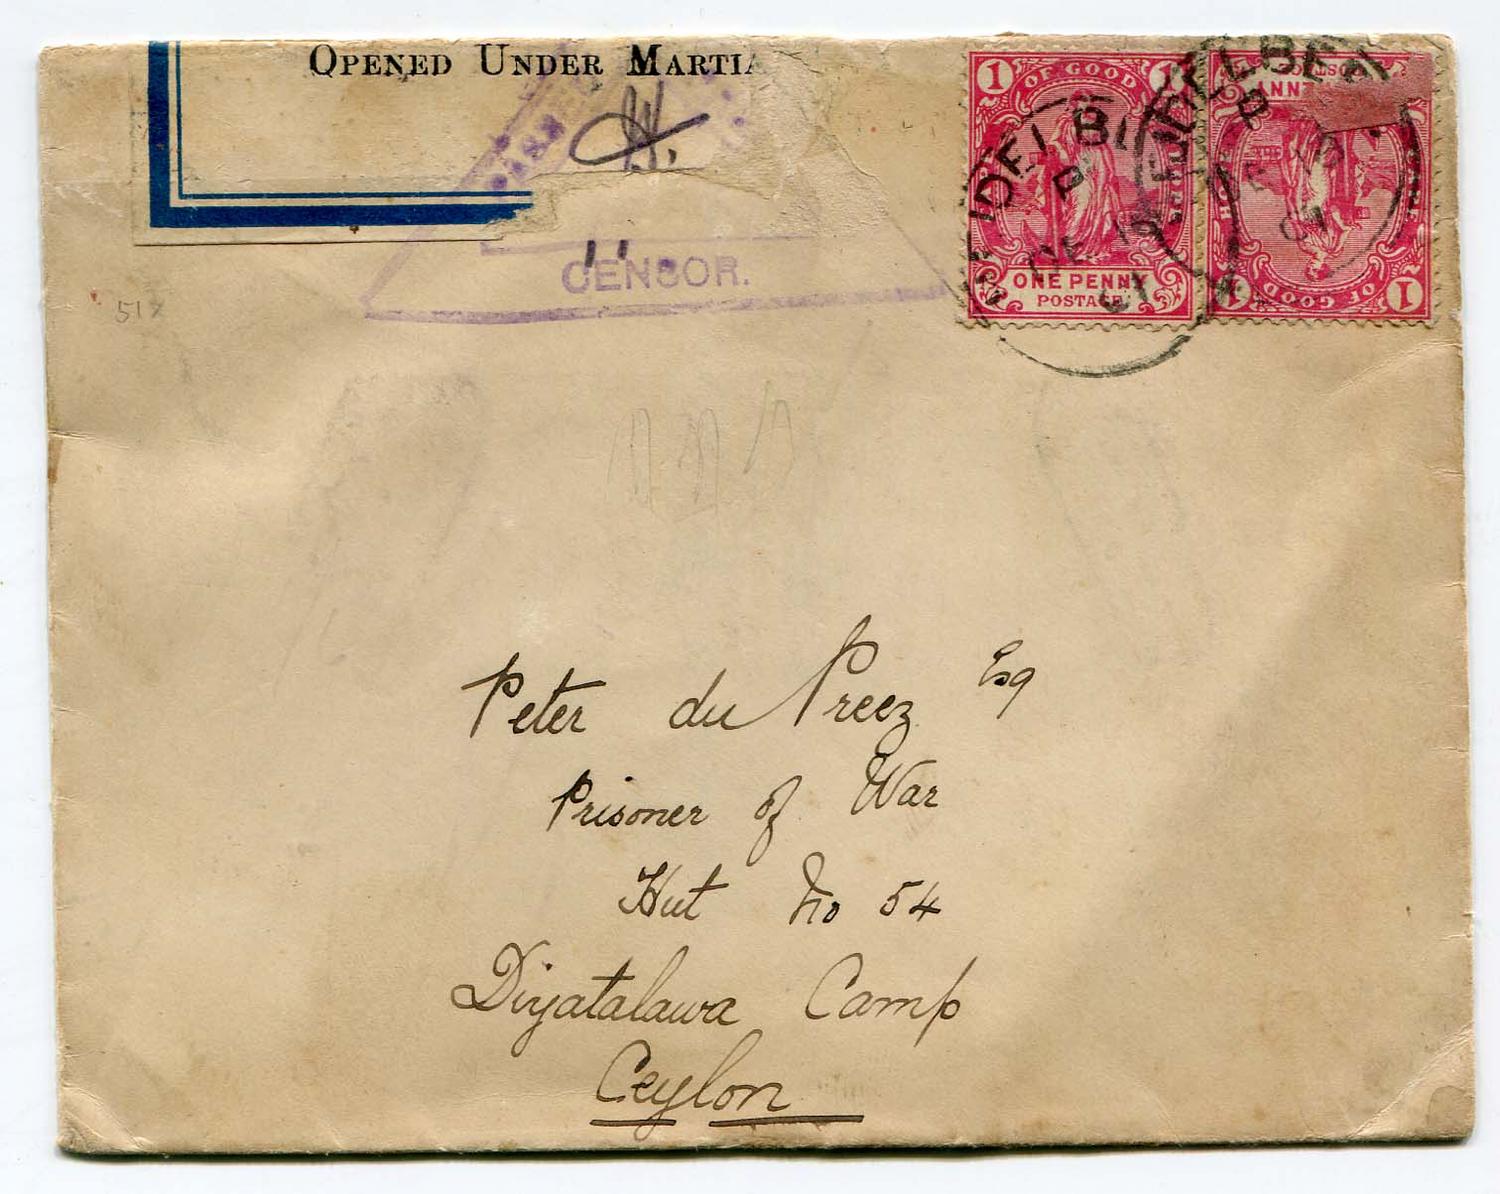 OPENED UNDER MARTIA
PASSED
11
CENSOR.
51
1 OF GOOD 1
ONE PENNY
POSTAGE
DE 19
01
OF GOOD
1
Peter du Preez Esq
Prisoner of War
Hut No 54
Diyatalawa Camp
Ceylon